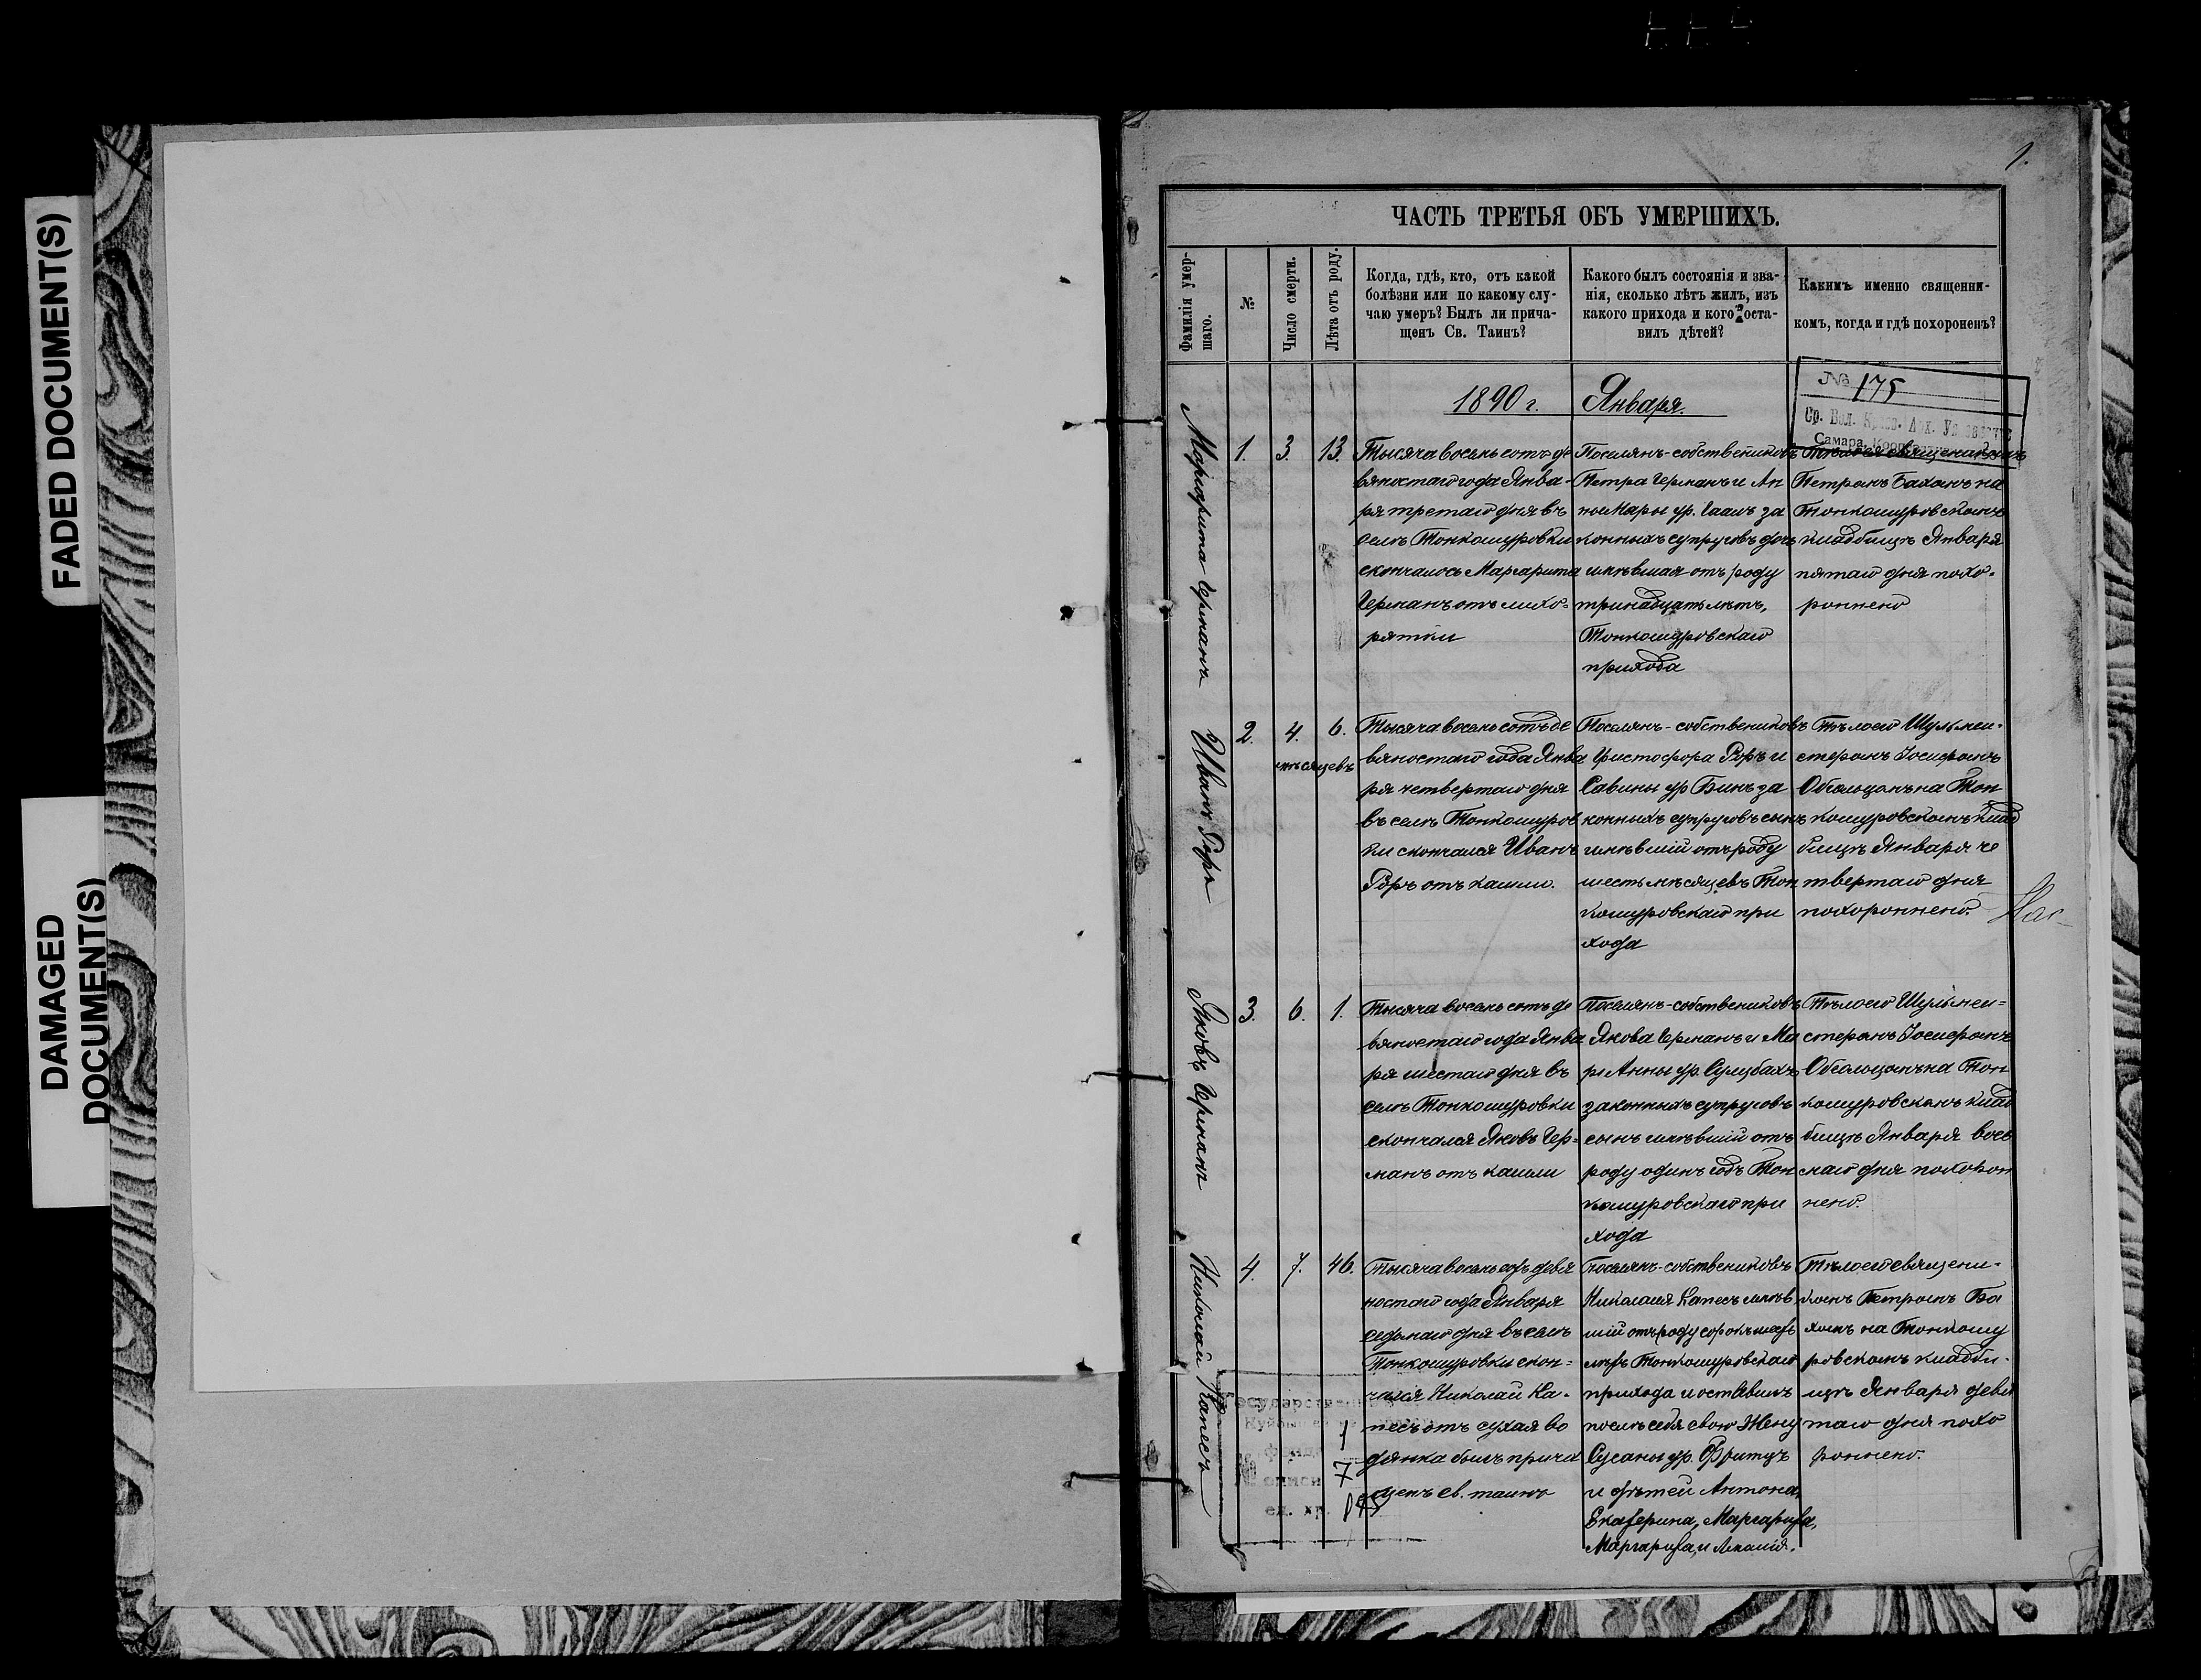 FADED DOCUMENT(S)
DAMAGED
DOCUMENT(S)
1.
ЧАСТЬ ТРЕТЬЯ ОБЪ УМЕРШИХЪ.
Фамилія умер-
шаго.
№
Число смерти.
Лѣта отъ роду.
Когда, гдѣ, кто, отъ какой
болѣзни или по какому слу-
чаю умеръ? Былъ ли прича-
щенъ Св. Таинъ?
Какого былъ состоянія и зва-
нія, сколько лѣтъ жилъ, изъ
какого прихода и кого оста-
вилъ дѣтей?
Какимъ именно священни-
комъ, когда и гдѣ похороненъ?
№ 175
Самара
1890 г. Января.
Маргарита Германъ
1. 3. 13.
Тысяча восемь сотъ де
вяностаго года Янва-
ря третьяго дня въ
селѣ Тонкошуровки
скончалось Маргарита
Германъ отъ лихо-
рятки
Поселянъ-собствениковъ
Петра Германъ и Ан
ны Мары ур. Гаамъ за
конныхъ супруговъ дочь
имѣвшая отъ роду
тринадцать лѣтъ,
Тонкошуровскаго
прихода
Тѣло ея священикомъ
Петромъ Бахомъ на
Тонкошуровскомъ
кладбищѣ Января
пятаго дня похо-
роннено
Иванъ Роръ
2. 4. 6.
мѣсяцевъ
Тысяча восемь сотъ де
вяностаго года Янва
ря четвертаго дня
въ селѣ Тонкошуров
ки скончался Иванъ
Роръ отъ кашли.
Поселянъ-собствениковъ
Христофора Роръ и
Савины ур Бинъ за
конныхъ супруговъ сынъ
имѣвшій отъ роду
шесть мѣсяцевъ Тон
кошуровскаго при
хода
Тѣло его Шульмей-
стеромъ Іосифомъ
Обгольцомъ на Тон
кошуровскомъ клад
бищѣ Января че
твертаго дня
похороннено.
Яковъ Германъ
3. 6. 1.
Тысяча восемь сотъ де
вяностаго года Янва
ря шестаго дня въ
селѣ Тонкошуровки
скончался Яковъ Гер-
манъ отъ кашли
Поселянъ-собствениковъ
Якова Германъ и Ма
ріи Анны ур. Сулцбахъ
законныхъ супруговъ
сынъ имѣвшій отъ
роду одинъ годъ Тон
кошуровскаго при
хода
Тѣло его Шульмей-
стеромъ Іосифомъ
Обгольцомъ на Тон
кошуровскомъ клад
бищѣ Января вось
маго дня похорон
нено.
Николай Капесъ
4. 7. 46.
Тысяча восемь сотъ девя
ностаго года Января
седьмаго дня въ селѣ
Тонкошуровки скон-
чался Николай Ка-
песъ отъ сухая во
дянка былъ прича
щенъ св. таинъ
поселянъ-собствениковъ
Николая Капесъ имѣв
шій отъ роду сорокъ шесть
лѣтъ Тонкошуровскаго
прихода и оставилъ
послѣ себя свою Жену
Сусаны ур. Фритцъ
и дѣтей Антона,
Екатерина, Маргарита,
Маргарита, и
Тѣло его священи-
комъ Петромъ Ба
хомъ на Тонкошу
ровскомъ кладби-
щѣ Января девя
таго дня похо
роннено.
1
№ описи 7
ед. хр. 175